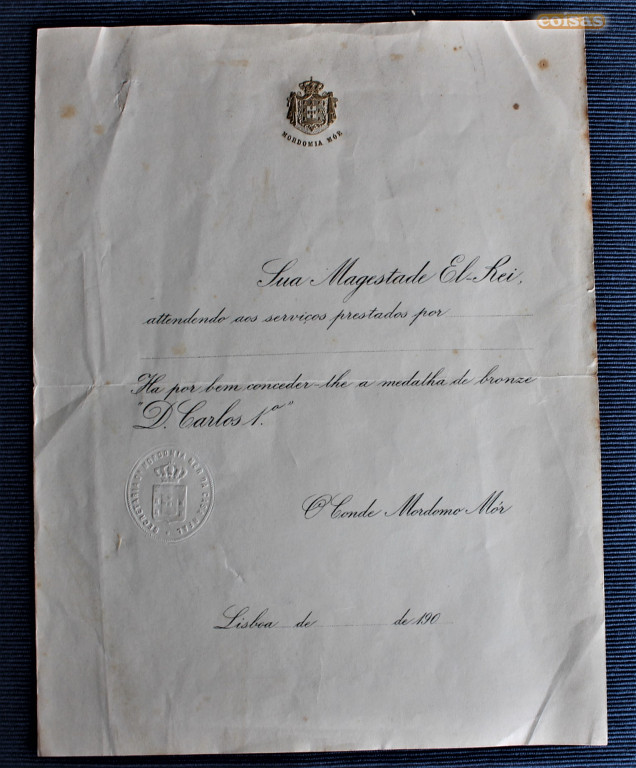 coisas
MORDOMIA MÓR
Sua Magestade El-Rei,
attendendo aos serviços prestados por
Ha por bem conceder-lhe a medalha de bronze
"D. Carlos 1.º"
O Conde Mordomo Mór
Lisboa de de 190